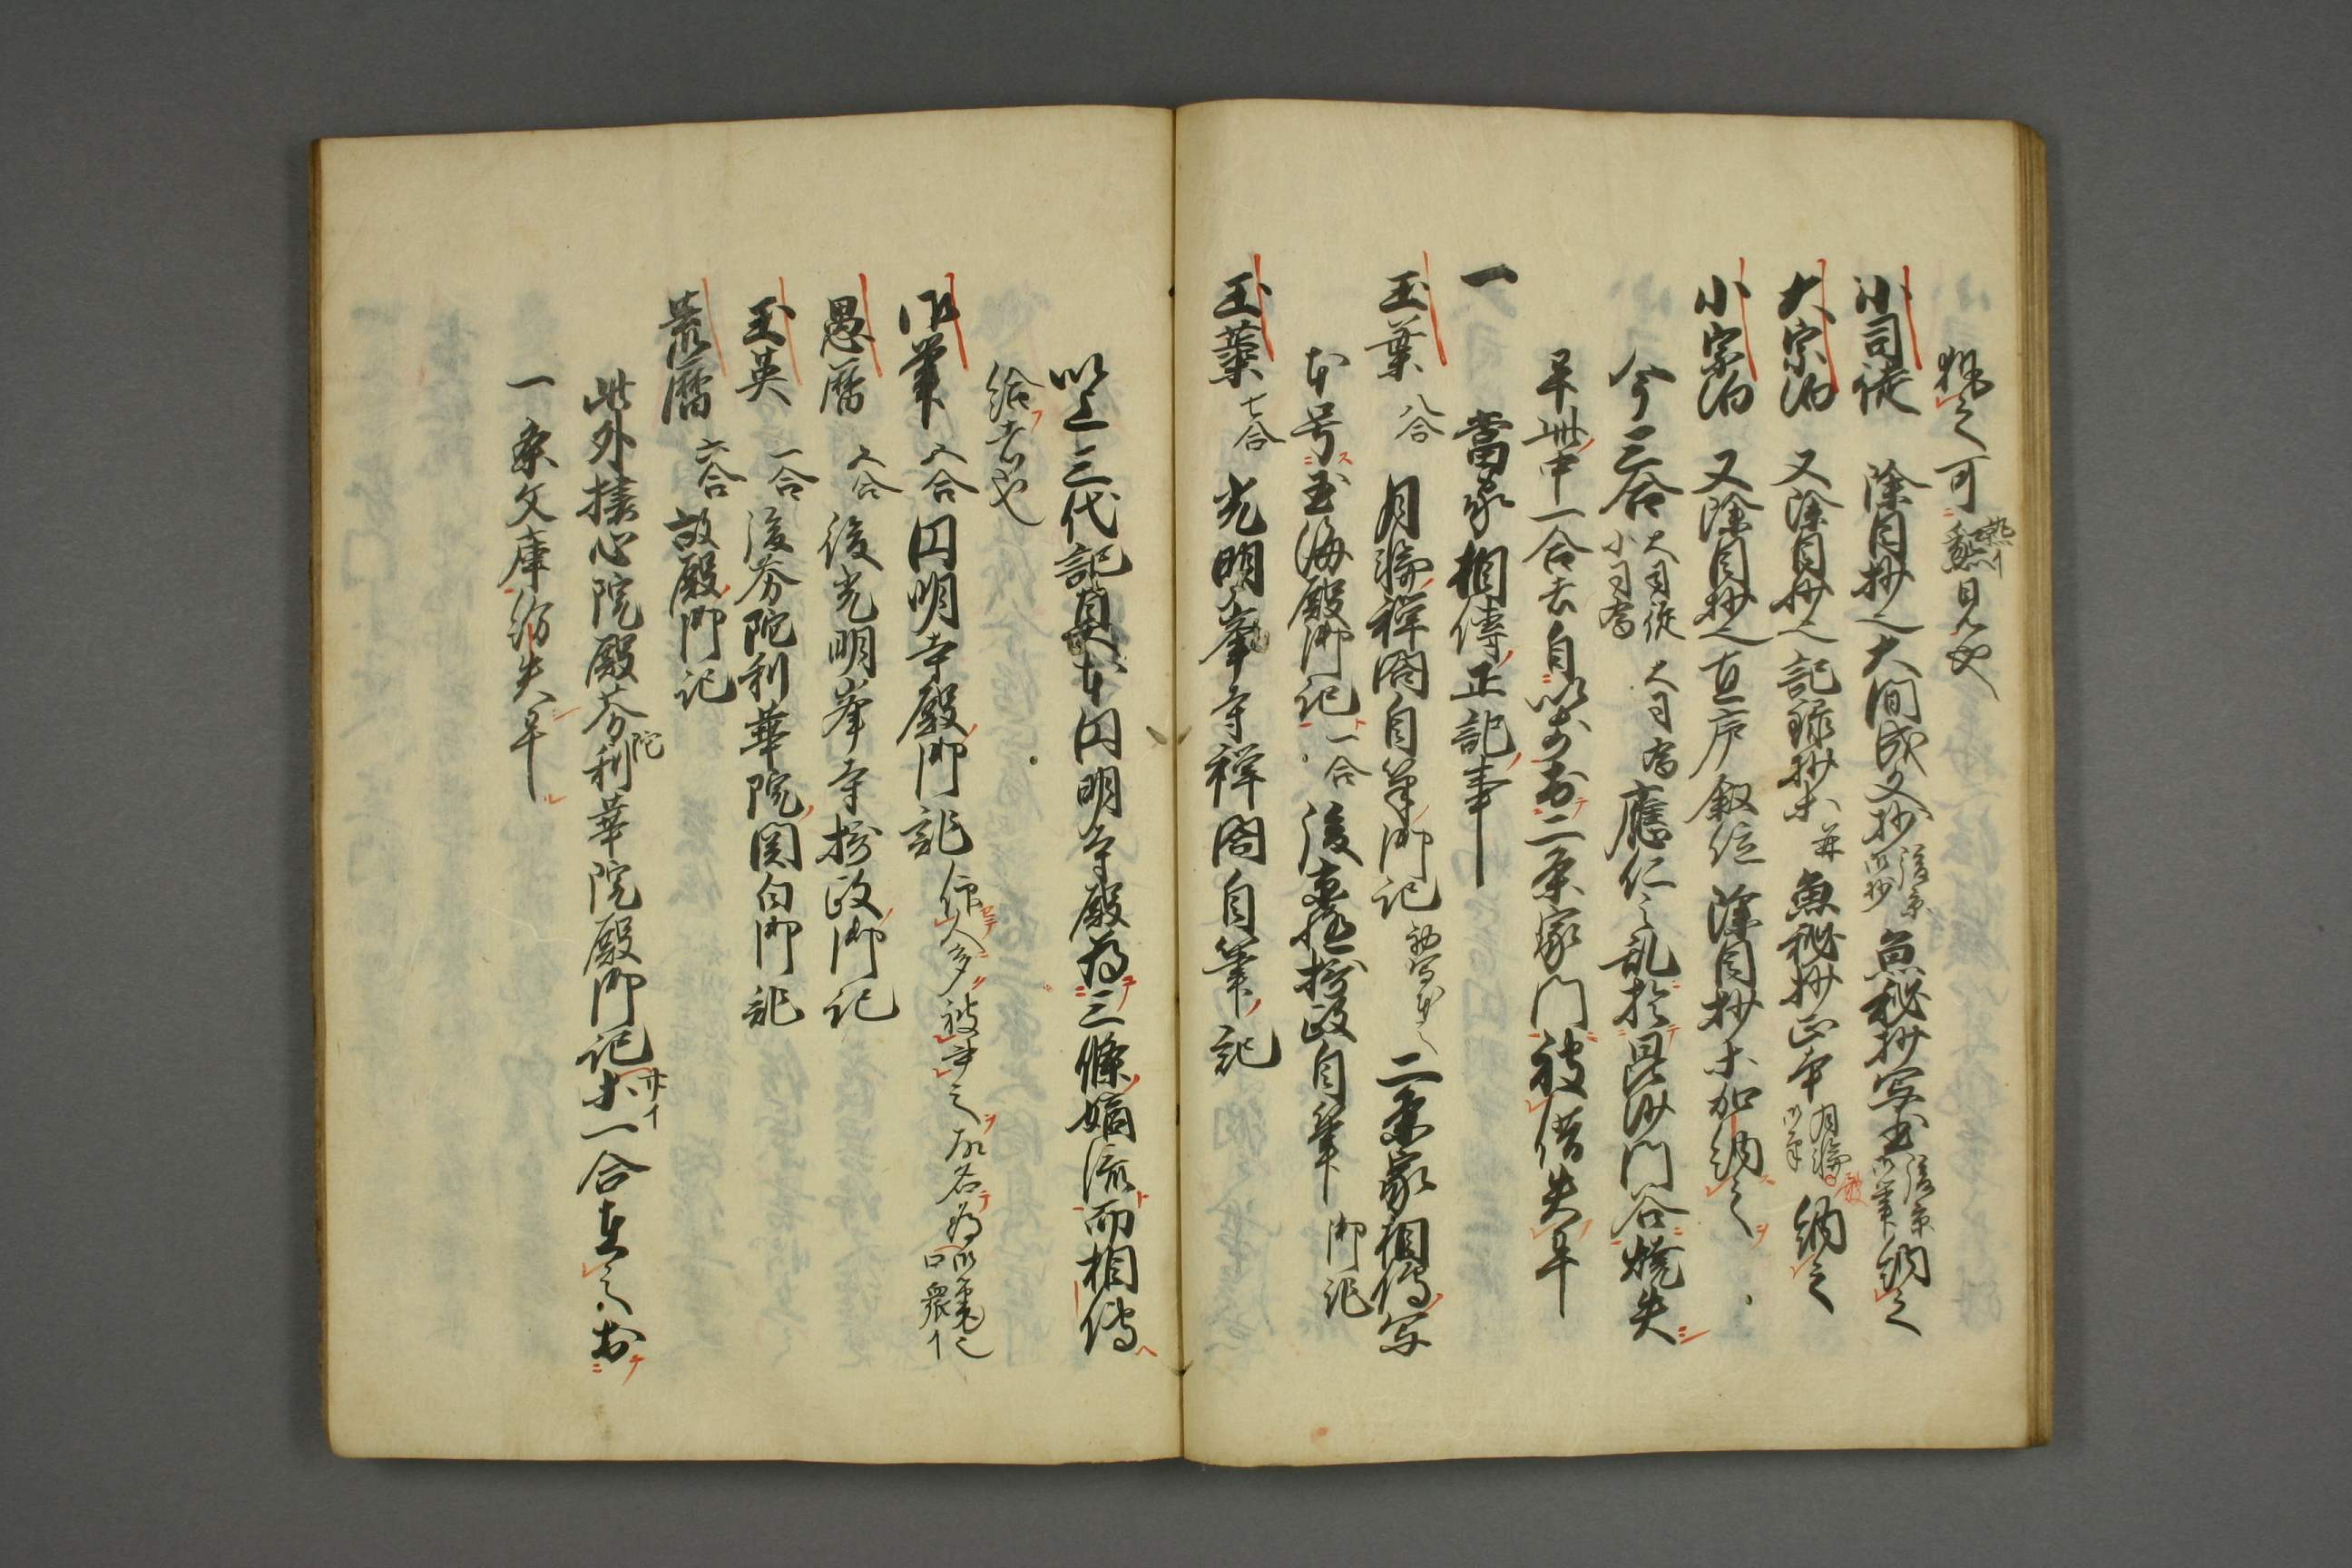 籾之可熟見也
小司徒 除目抄也 大間成文抄 後京御抄 魚秘抄写書 後京御筆 納之
大宗伯 又除目抄也 記録抄等 并 魚秘抄正本 月輪殿御筆 納之
小宗伯 又除目抄也 直廬叙位除目抄等加納之
今三合 大司徒 小司 大司 應仁之乱於毘沙門谷焼失
早此中一合去自以前於二条家門被借失早
一 當家相傳正記事
玉葉 八合 月輪禅閤自筆御記 二条家相傳写
本号玉海殿御記 一合 後京極摂政自筆御記
玉蘂 七合 光明峯寺禅閤自筆記
以上三代記真本円明寺殿為三條嫡流而相傳
給者也
御筆 五合 円明寺殿御記 作人多被書之
愚暦 五合 後光明峯寺摂政御記
玉英 一合 後芬陀利華院関白御記
荒暦 六合 故殿御記
此外捿心院殿芬陀利華院殿御記等一合在之於
一条文庫紛失早